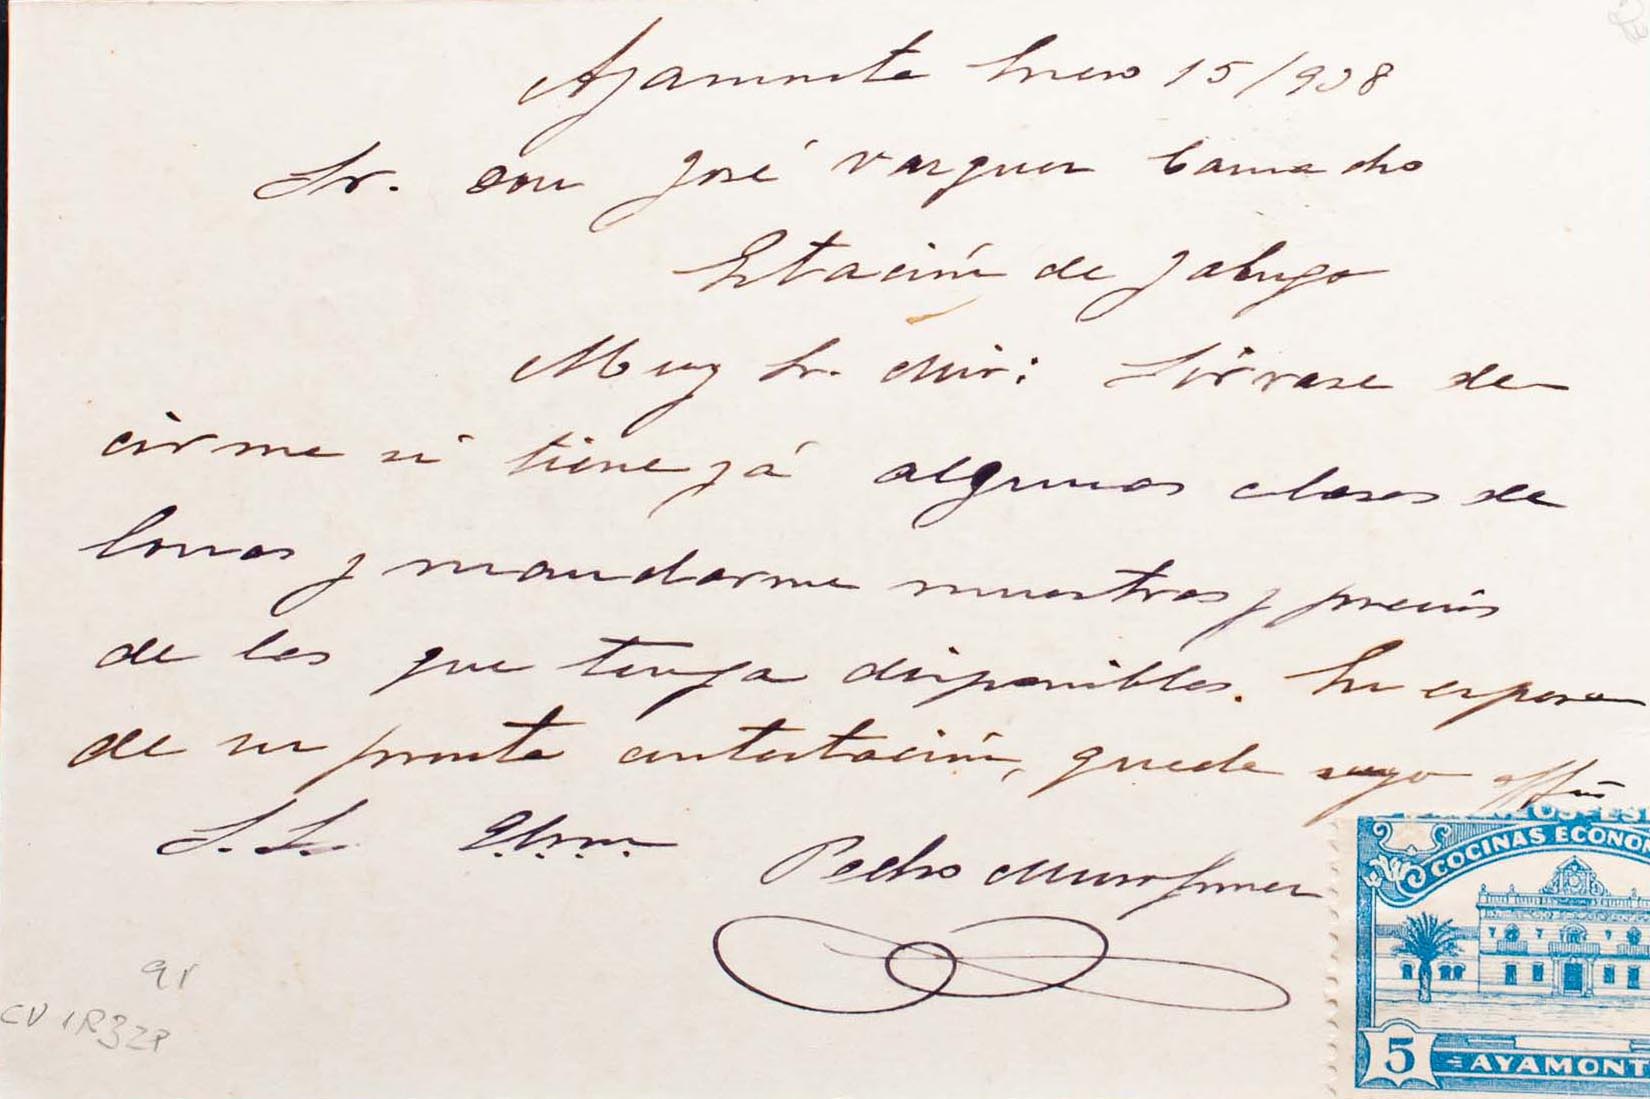 Ayamonte Enero 15/938
Sr. Don José Vazquez Camacho
Estación de Jabugo
Muy Sr. mio: Sirvase de
cirme si tiene yá algunas clases de
lonas y mandarme muestras y precios
de las que tenga disponibles. En espera
de su pronta contestación, queda suyo affmo
S.S. q.e.s.m.
Pedro
COCINAS ECONOM
5 AYAMONT
9r
CV 1R32P